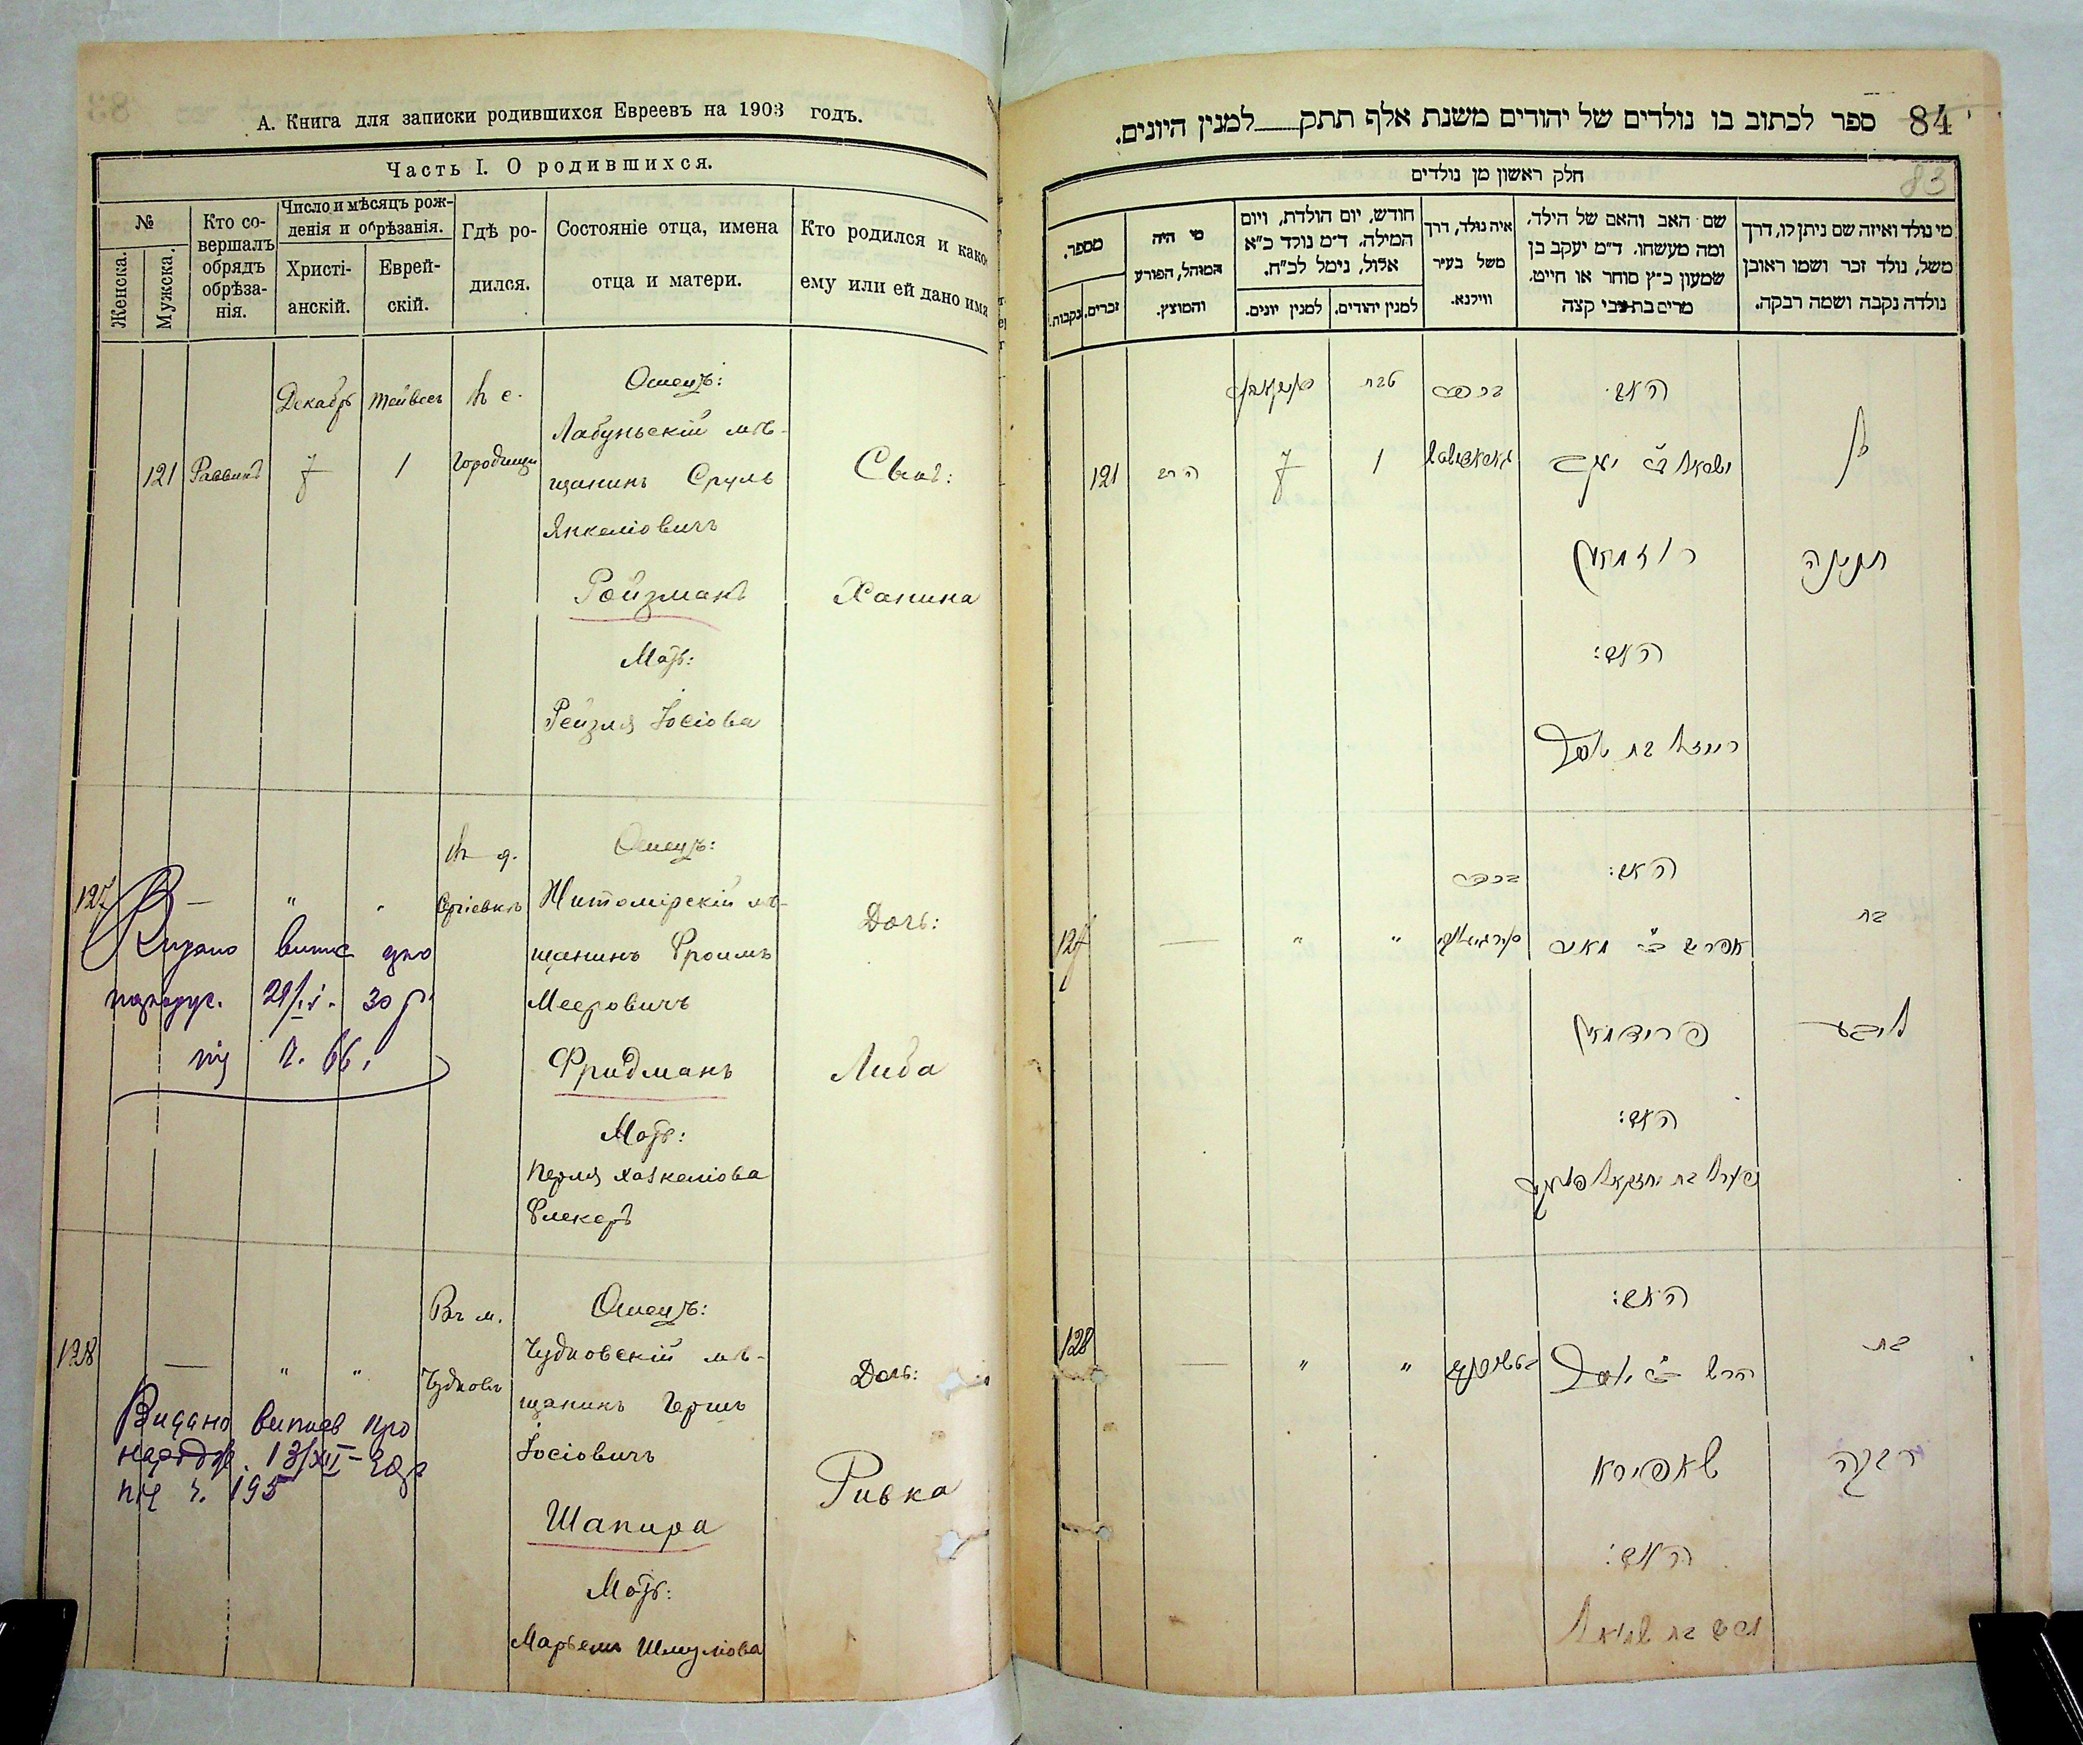 А. Книга для записки родившихся Евреевъ на 1903 годъ.
Часть I. О родившихся.
№
Женска.
Мужска.
Кто со-
вершалъ
обрядъ
обрѣза-
нія.
Число и мѣсяцъ рож-
денія и обрѣзанія.
Христі-
анскій.
Еврей-
скій.
Гдѣ ро-
дился.
Состояніе отца, имена
отца и матери.
Кто родился и како
ему или ей дано имя
121
Раввинъ
Декабрь
7
Тейвесъ
1
Городищи
Отецъ:
Лабуньскій мѣ-
щанинъ Сруль
Янкеліовичъ
Ройзманъ
Мать:
Рейзля Іосіова
Сынъ:
Ханина
127
—
"
"
Отецъ:
Житомірскій мѣ-
щанинъ Фроимъ
Мееровичъ
Фридманъ
Мать:
Перля Хаскеліова
Флекеръ
Дочь:
Либа
128
—
"
"
Въ м.
Чудновъ
Отецъ:
Чудновскій мѣ-
щанинъ Гершъ
Іосіовичъ
Шапира
Мать:
Марьемъ Шмуліова
Дочь:
Ривка
Видано випис про
народж. 13/XII – 30р
під ч. 195
84
ספר לכתוב בו נולדים של יהודים משנת אלף תתק למנין היונים.
83
חלק ראשון מן נולדים
מי נולד ואיזה שם ניתן לו, דרך
משל, נולד זכר ושמו ראובן
נולדה נקבה ושמה רבקה.
שם האב והאם של הילד,
ומה מעשהו. ד"מ יעקב בן
שמעון כ"ץ סוחר או חייט.
מרים בת צבי קצה
איה נולד, דרך
משל בעיר
ווילנא.
חודש, יום הולדת, ויום
המילה. ד"מ נולד כ"א
אלול, נימל לכ"ח.
למנין יהודים.
למנין יונים.
מי היה
המוהל, הפורע
והמוצץ.
מספר.
זכרים.
נקבות.
בן
חנינה
האב:
ישראל ב"ר יעקב
רוזמאן
האם:
רייזל בת יוסף
בכפר
טבת
1
7
הרב
121
בת
ליבע
האב:
אפרים ב"ר מאיר
פרידמאן
האם:
פערל בת יחזקאל פלעקער
בכפר
"
"
—
127
בת
רבקה
האב:
הרש ב"ר יוסף
שאפירא
האם:
מרים בת שמואל
"
"
—
128